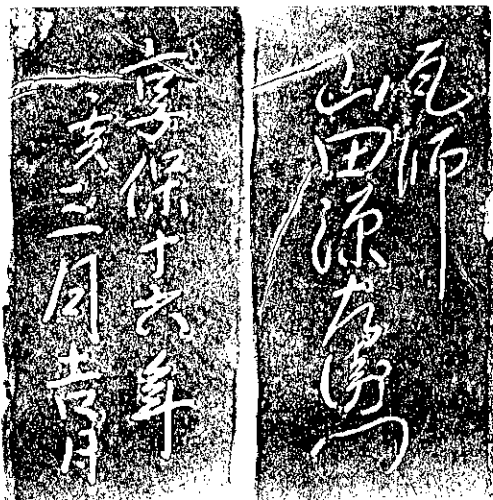 瓦師
山田源左衛門
享保十六年
亥三月吉日